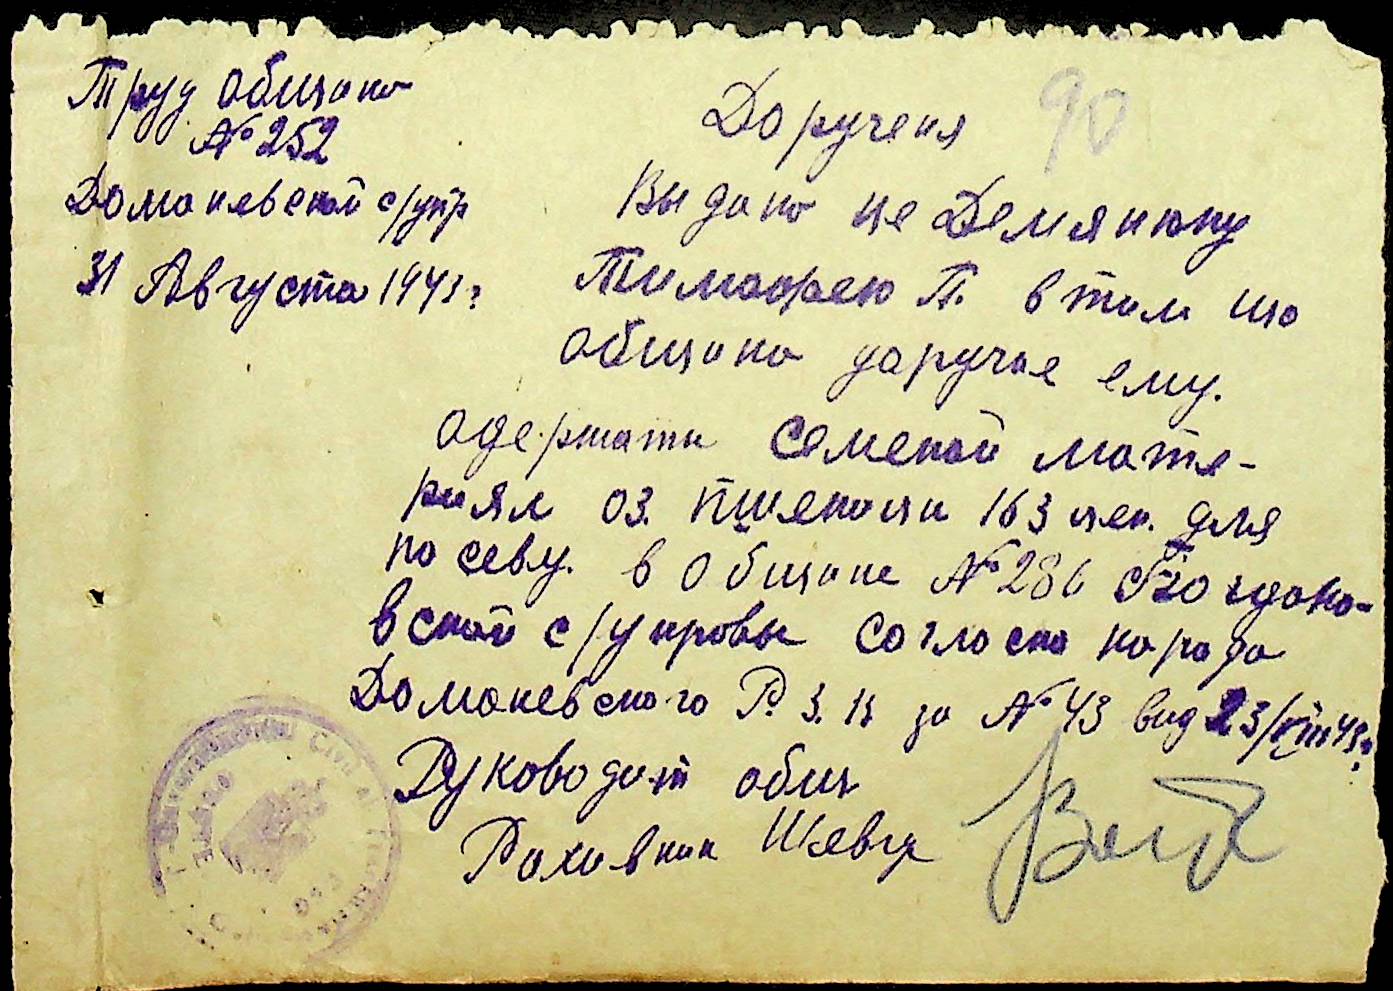 Труд община
№ 252
Доманевской с/упр
31 Августа 1943 г
90
Доручення
Выдано це Демянюку
Тимофею П. в том що
община даручае ему.
одержати семеной мате-
риял оз. пшеници 163 цен. для
посеву. в общине № 286 Богдано-
вской с/управы согласно наряда
Доманевского Р. З. В за № 43 вид 23/VIII 43 г.
Руководит общ
Раховник Шевчу
Civil al